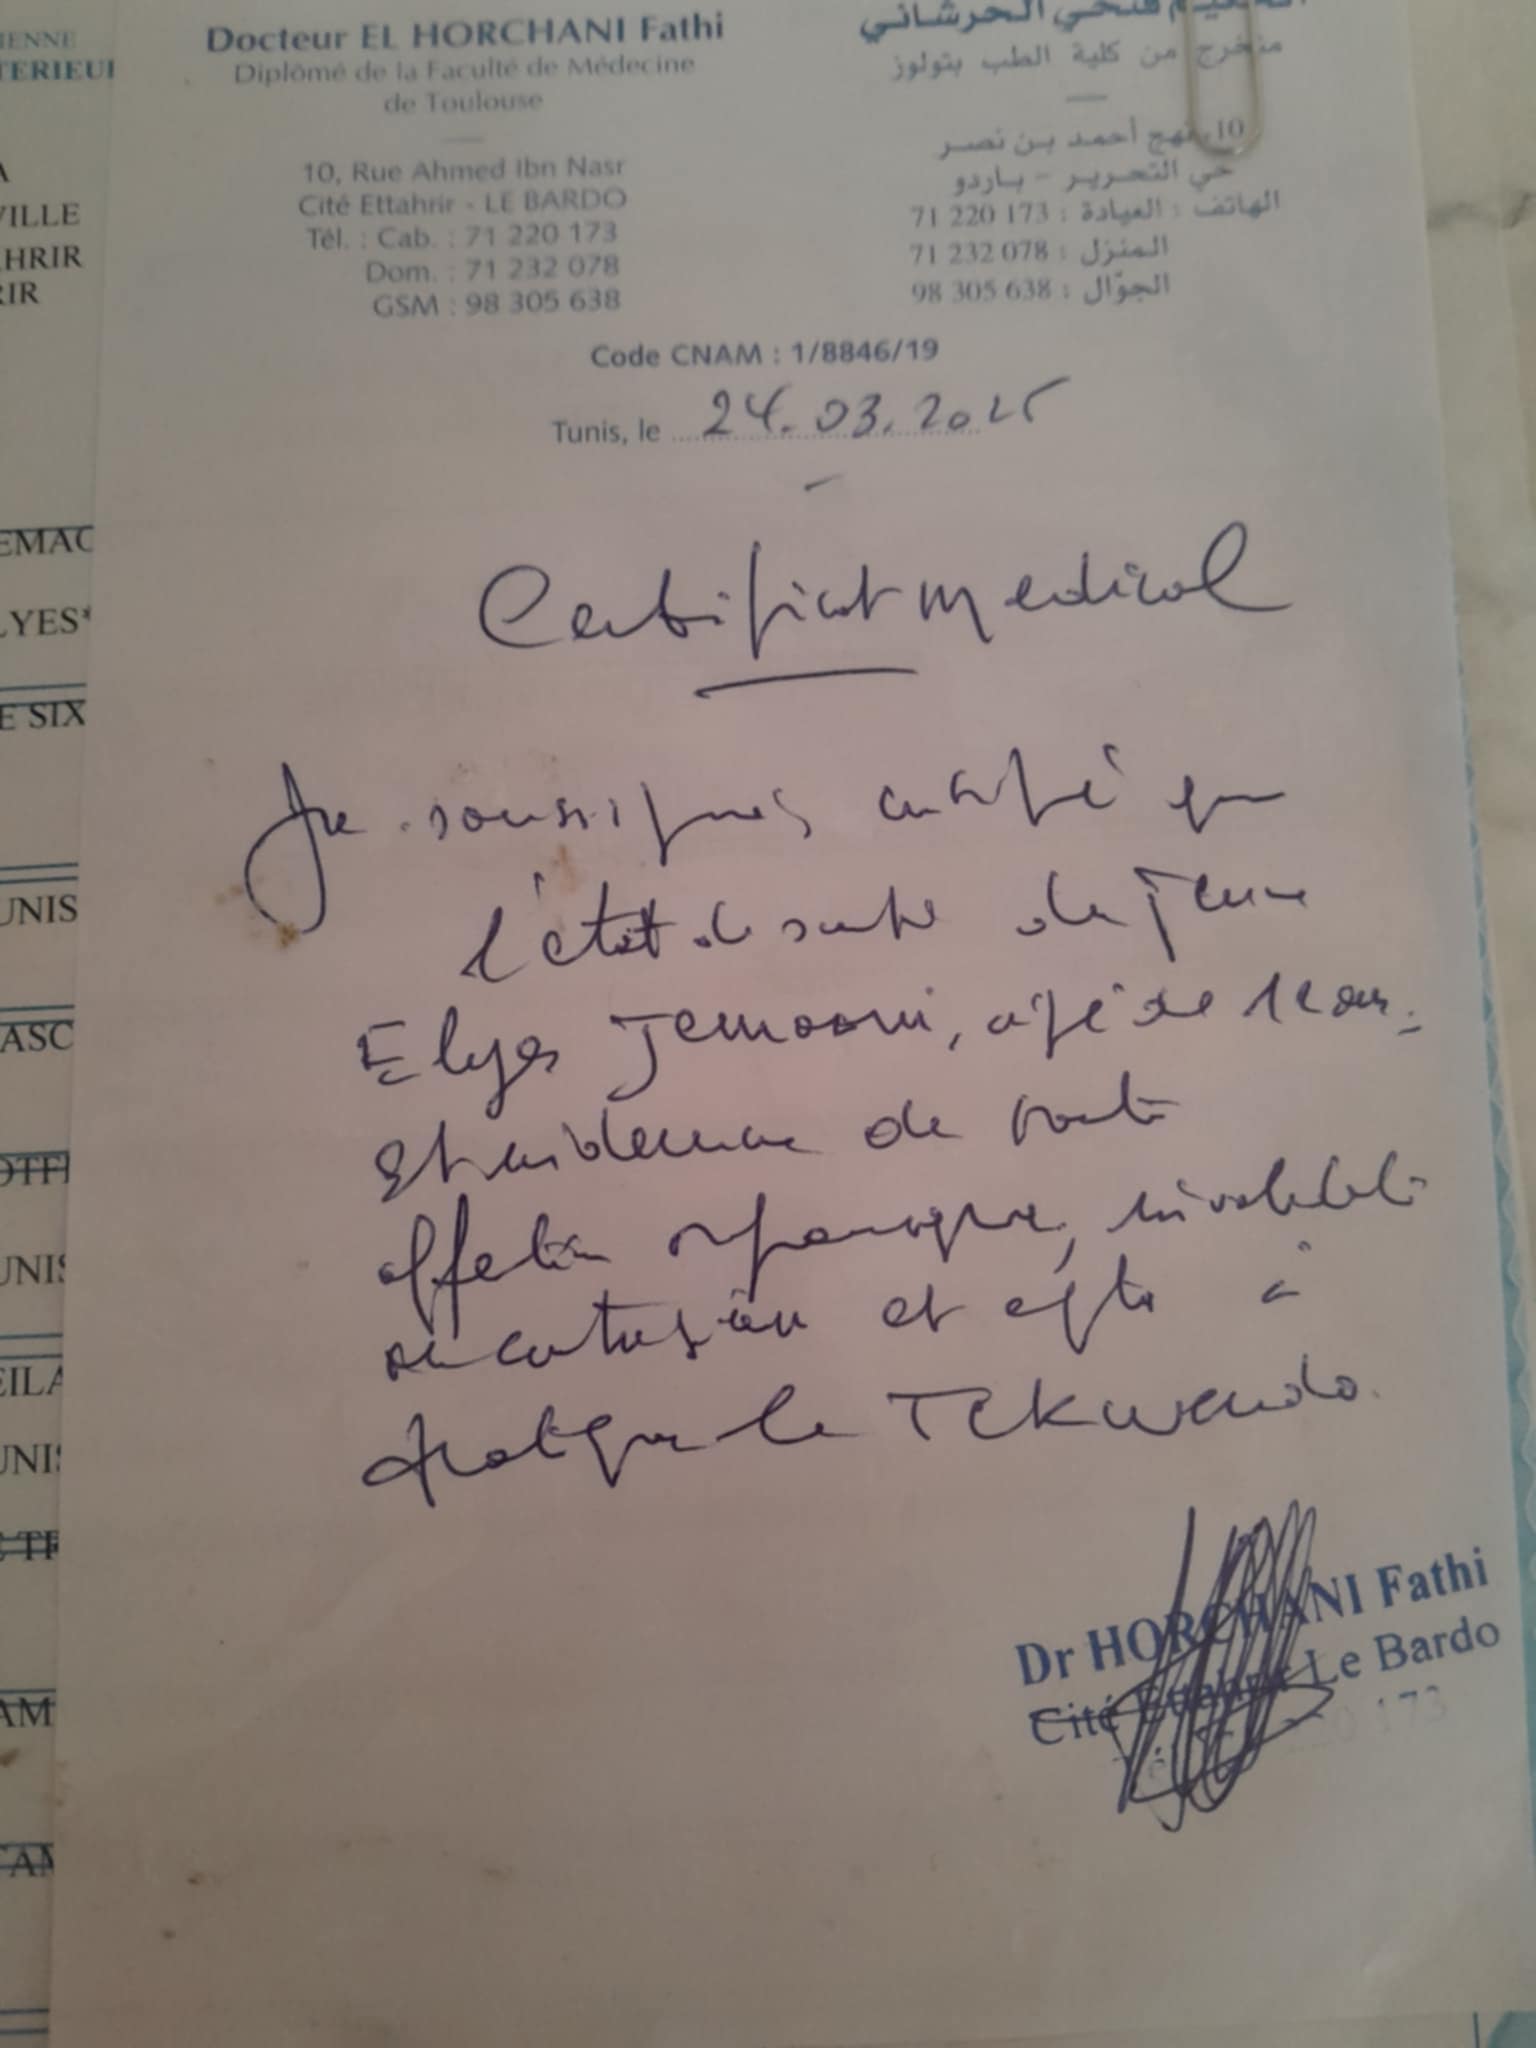 IENNE
TERIEUR
A
VILLE
AHRIR
RIR
EMAC
LYES*
E SIX
UNIS
ASC
UNIS
EILA
UNIS
AM
Docteur EL HORCHANI Fathi
Diplômé de la Faculté de Médecine
de Toulouse
10, Rue Ahmed Ibn Nasr
Cité Ettahrir - LE BARDO
Tél. : Cab. : 71 220 173
Dom. : 71 232 078
GSM : 98 305 638
الحكيم فتحي الحرشاني
متخرج من كلية الطب بتولوز
10، نهج أحمد بن نصر
حي التحرير - باردو
الهاتف : العيادة : 71 220 173
المنزل : 71 232 078
الجوّال : 98 305 638
Code CNAM : 1/8846/19
Tunis, le 24.03.2025
Certificat medical
Je soussigné certifié que
l'état de santé de Jeune
Elyes Jemaoui, âgé de ans
Est indemne de toute
affection organique,
de contusion et apte à
pratiquer le Tekwendo.
Dr HORCHANI Fathi
Cité Ettahrir Le Bardo
173